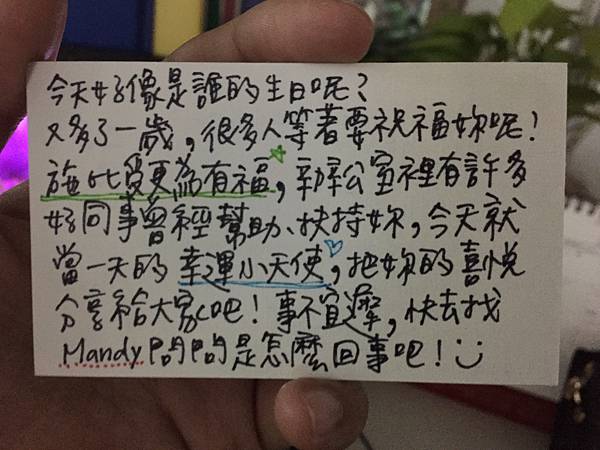 今天好像是誰的生日呢？
又多了一歲，很多人等著要祝福妳呢！
施比受更為有福，辦公室裡有許多
好同事曾經幫助、扶持妳，今天就
當一天的幸運小天使，把妳的喜悅
分享給大家吧！事不宜遲，快去找
Mandy問問是怎麼回事吧！